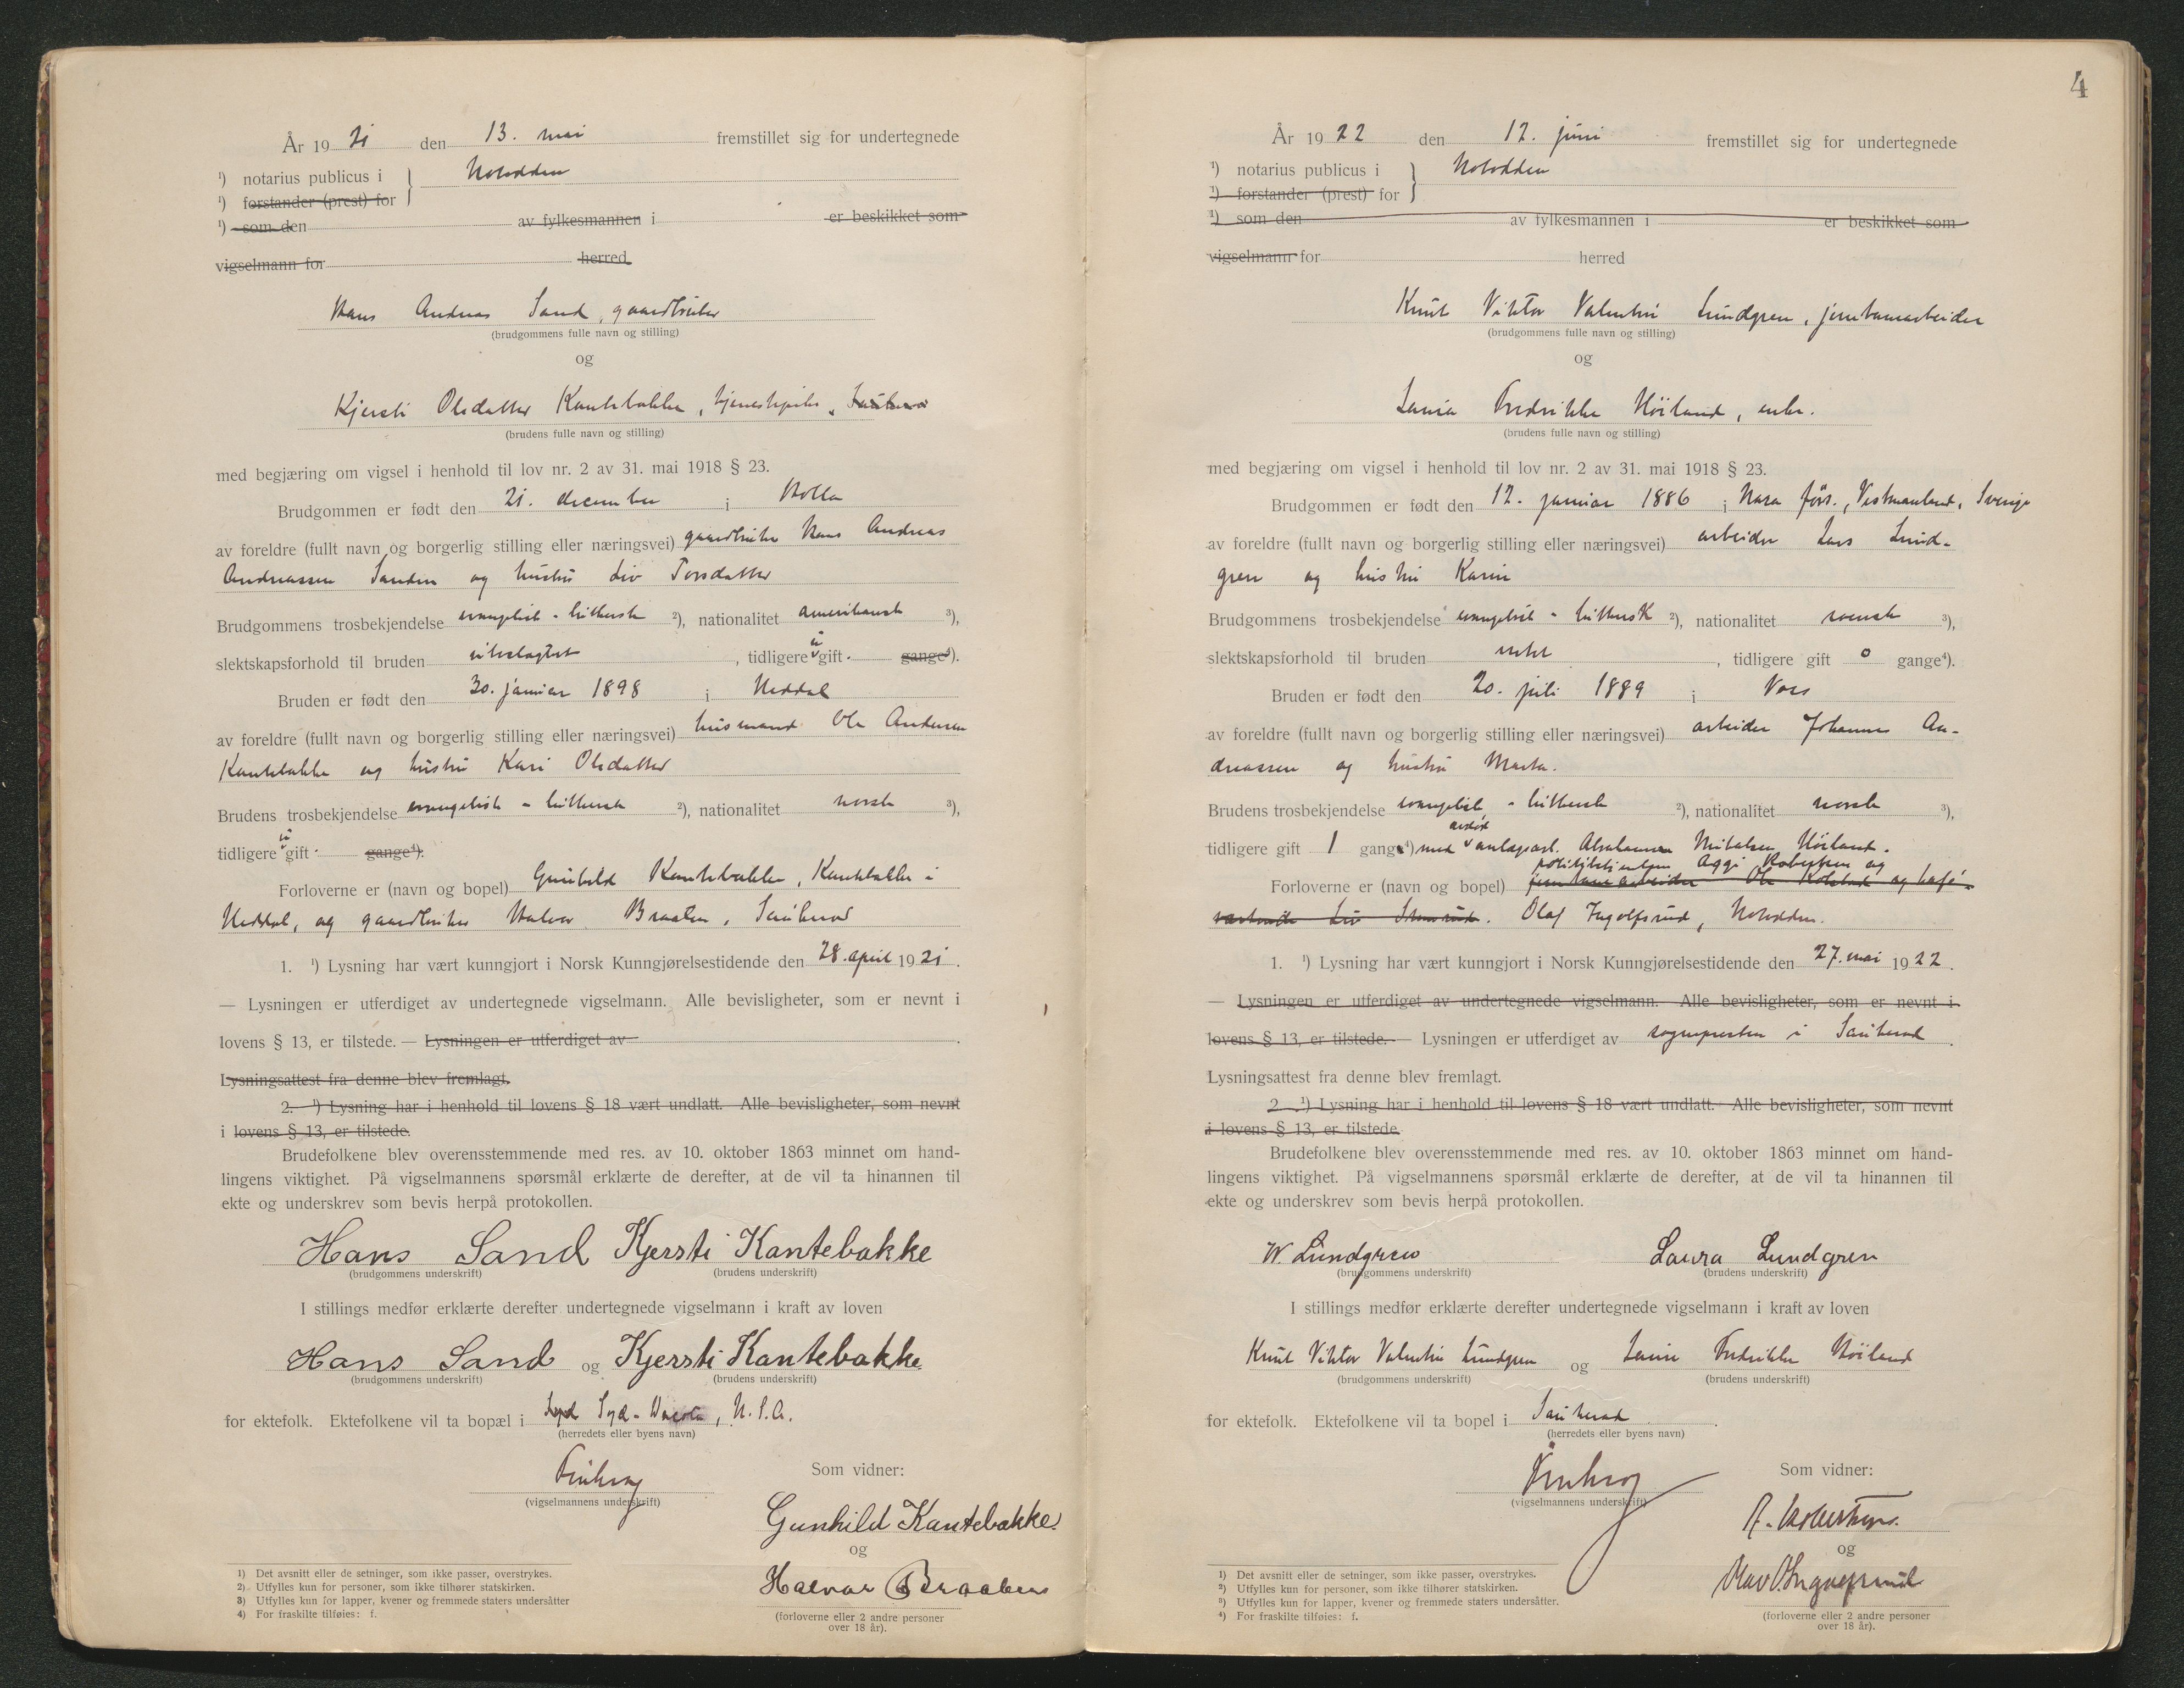 År 1921 den 13. mai fremstillet sig for undertegnede
¹) notarius publicus i } Notodden
¹) forstander (prest) for
¹) som den av fylkesmannen i er beskikket som
vigselmann for herred
Hans Andreas Sand, gaardbruker
(brudgommens fulle navn og stilling)
og
Kjersti Olsdatter Kantebakke, tjenestepike, Sauherad
(brudens fulle navn og stilling)
med begjæring om vigsel i henhold til lov nr. 2 av 31. mai 1918 § 23.
Brudgommen er født den 21. december i Holla
av foreldre (fullt navn og borgerlig stilling eller næringsvei) gaardbruker Hans Andreas
Andreassen Sanden og hustru Liv Torsdatter
Brudgommens trosbekjendelse evangelisk-luthersk ²), nationalitet amerikansk ³),
slektskapsforhold til bruden ubeslægtet, tidligere u gift gange⁴).
Bruden er født den 30. januar 1898 i Heddal
av foreldre (fullt navn og borgerlig stilling eller næringsvei) husmand Ole Andersen
Kantebakke og hustru Kari Olsdatter
Brudens trosbekjendelse evangelisk-luthersk ²), nationalitet norsk ³),
tidligere u gift gange⁴).
Forloverne er (navn og bopel) Gunhild Kantebakke, Kantebakke i
Heddal, og gaardbruker Halvor Braaten, Sauherad
1. ¹) Lysning har vært kunngjort i Norsk Kunngjørelsestidende den 28. april 1921.
— Lysningen er utferdiget av undertegnede vigselmann. Alle bevisligheter, som er nevnt i
lovens § 13, er tilstede. — Lysningen er utferdiget av .
Lysningsattest fra denne blev fremlagt.
2. ¹) Lysning har i henhold til lovens § 18 vært undlatt. Alle bevisligheter, som nevnt
i lovens § 13, er tilstede.
Brudefolkene blev overensstemmende med res. av 10. oktober 1863 minnet om hand-
lingens viktighet. På vigselmannens spørsmål erklærte de derefter, at de vil ta hinannen til
ekte og underskrev som bevis herpå protokollen.
Hans Sand Kjersti Kantebakke
(brudgommens underskrift) (brudens underskrift)
I stillings medfør erklærte derefter undertegnede vigselmann i kraft av loven
Hans Sand og Kjersti Kantebakke
(brudgommens underskrift) (brudens underskrift)
for ektefolk. Ektefolkene vil ta bopæl i Syd-Dacota, U.S.A.
(herredets eller byens navn)
Som vidner:
(vigselmannens underskrift)
Gunhild Kantebakke
og
Halvor Braaten
(forloverne eller 2 andre personer
over 18 år).
1) Det avsnitt eller de setninger, som ikke passer, overstrykes.
2) Utfylles kun for personer, som ikke tilhører statskirken.
3) Utfylles kun for lapper, kvener og fremmede staters undersåtter
4) For fraskilte tilføies: f.
4
År 1922 den 12. juni fremstillet sig for undertegnede
¹) notarius publicus i } Notodden
¹) forstander (prest) for
¹) som den av fylkesmannen i er beskikket som
vigselmann for herred
Knut Viktor Valentin Lundgren, jernbanearbeider
(brudgommens fulle navn og stilling)
og
Laura Fredrikke Höiland, enke.
(brudens fulle navn og stilling)
med begjæring om vigsel i henhold til lov nr. 2 av 31. mai 1918 § 23.
Brudgommen er født den 12. januar 1886 i Nara förs., Vestmanland, Sverige
av foreldre (fullt navn og borgerlig stilling eller næringsvei) arbeider Lars Lund-
gren og hustru Karin
Brudgommens trosbekjendelse evangelisk-luthersk ²), nationalitet svensk ³),
slektskapsforhold til bruden intet, tidligere gift 0 gange⁴).
Bruden er født den 20. juli 1889 i Voss
av foreldre (fullt navn og borgerlig stilling eller næringsvei) arbeider Johannes An-
dreassen og hustru Marta.
Brudens trosbekjendelse evangelisk-luthersk ²), nationalitet norsk ³),
tidligere gift 1 gang⁴) med avdød anlægsarb. Abraham Mikalsen Höiland.
politibetjenten Aggi Robertsen og
Forloverne er (navn og bopel) jernbanearbeider Ole Kolstad og kafé-
vertinde Liv . Olaf Ingolfsrud, Notodden.
1. ¹) Lysning har vært kunngjort i Norsk Kunngjørelsestidende den 27. mai 1922.
— Lysningen er utferdiget av undertegnede vigselmann. Alle bevisligheter, som er nevnt i
lovens § 13, er tilstede. — Lysningen er utferdiget av sognepresten i Sauherad.
Lysningsattest fra denne blev fremlagt.
2. ¹) Lysning har i henhold til lovens § 18 vært undlatt. Alle bevisligheter, som nevnt
i lovens § 13, er tilstede.
Brudefolkene blev overensstemmende med res. av 10. oktober 1863 minnet om hand-
lingens viktighet. På vigselmannens spørsmål erklærte de derefter, at de vil ta hinannen til
ekte og underskrev som bevis herpå protokollen.
W. Lundgren Laura Lundgren
(brudgommens underskrift) (brudens underskrift)
I stillings medfør erklærte derefter undertegnede vigselmann i kraft av loven
Knut Viktor Valentin Lundgren og Laura Fredrikke Höiland
(brudgommens underskrift) (brudens underskrift)
for ektefolk. Ektefolkene vil ta bopel i Sauherad.
(herredets eller byens navn)
Som vidner:
(vigselmannens underskrift)
A. Robertsen.
og
Olav O. Ingolfsrud
(forloverne eller 2 andre personer
over 18 år).
1) Det avsnitt eller de setninger, som ikke passer, overstrykes.
2) Utfylles kun for personer, som ikke tilhører statskirken.
3) Utfylles kun for lapper, kvener og fremmede staters undersåtter.
4) For fraskilte tilføies: f.